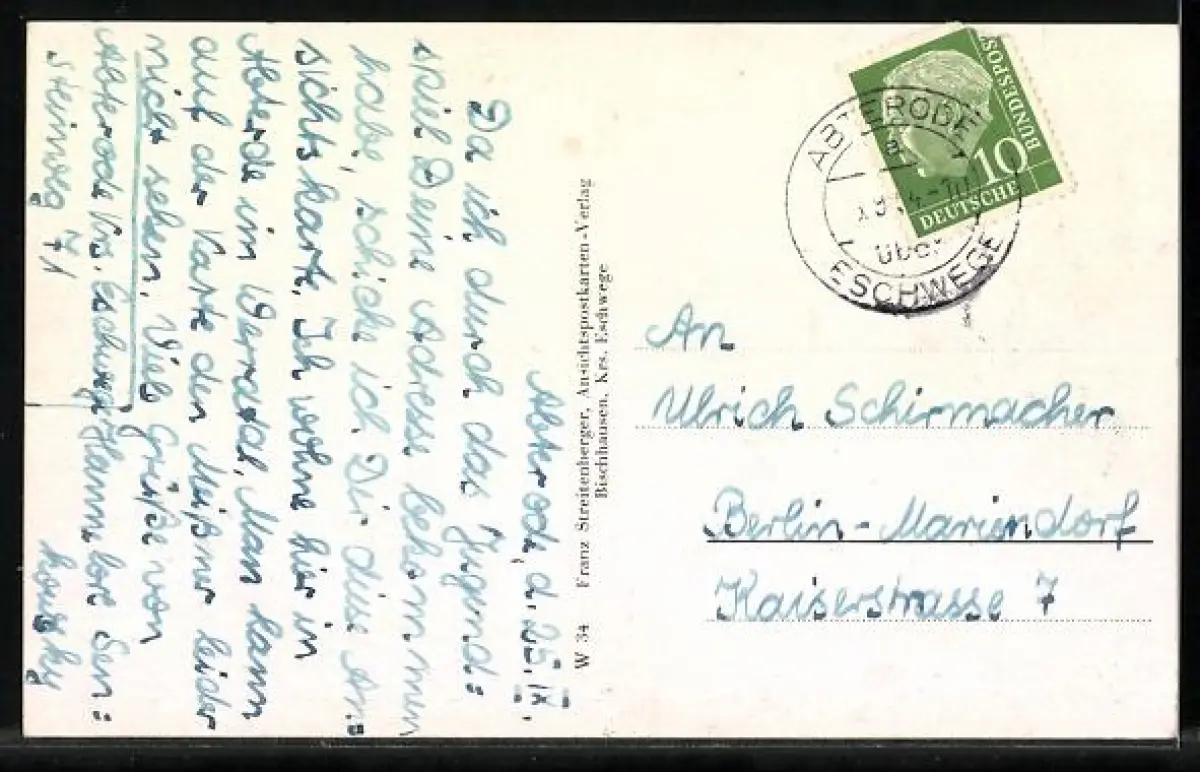 Abterode, d. 25. IX.
Da ich durch das Jugend=
spiel Deine Adresse bekommen
habe, schicke ich Dir diese An=
sichtskarte. Ich wohne hier in
Abterode im Werratal. Man kann
auf der Karte den Meißner leider
nicht sehen. Viele Grüße von
Hannelore Sen=
kowsky
Abterode Krs. Eschwege
Steinweg 71
W 34 Franz Streitenberger, Ansichtspostkarten-Verlag
Bischhausen, Krs. Eschwege
DEUTSCHE
BUNDESPOST
10
ABTERODE
a
über
ESCHWEGE
An
Ulrich Schirmacher
Berlin-Mariendorf
Kaiserstrasse 7